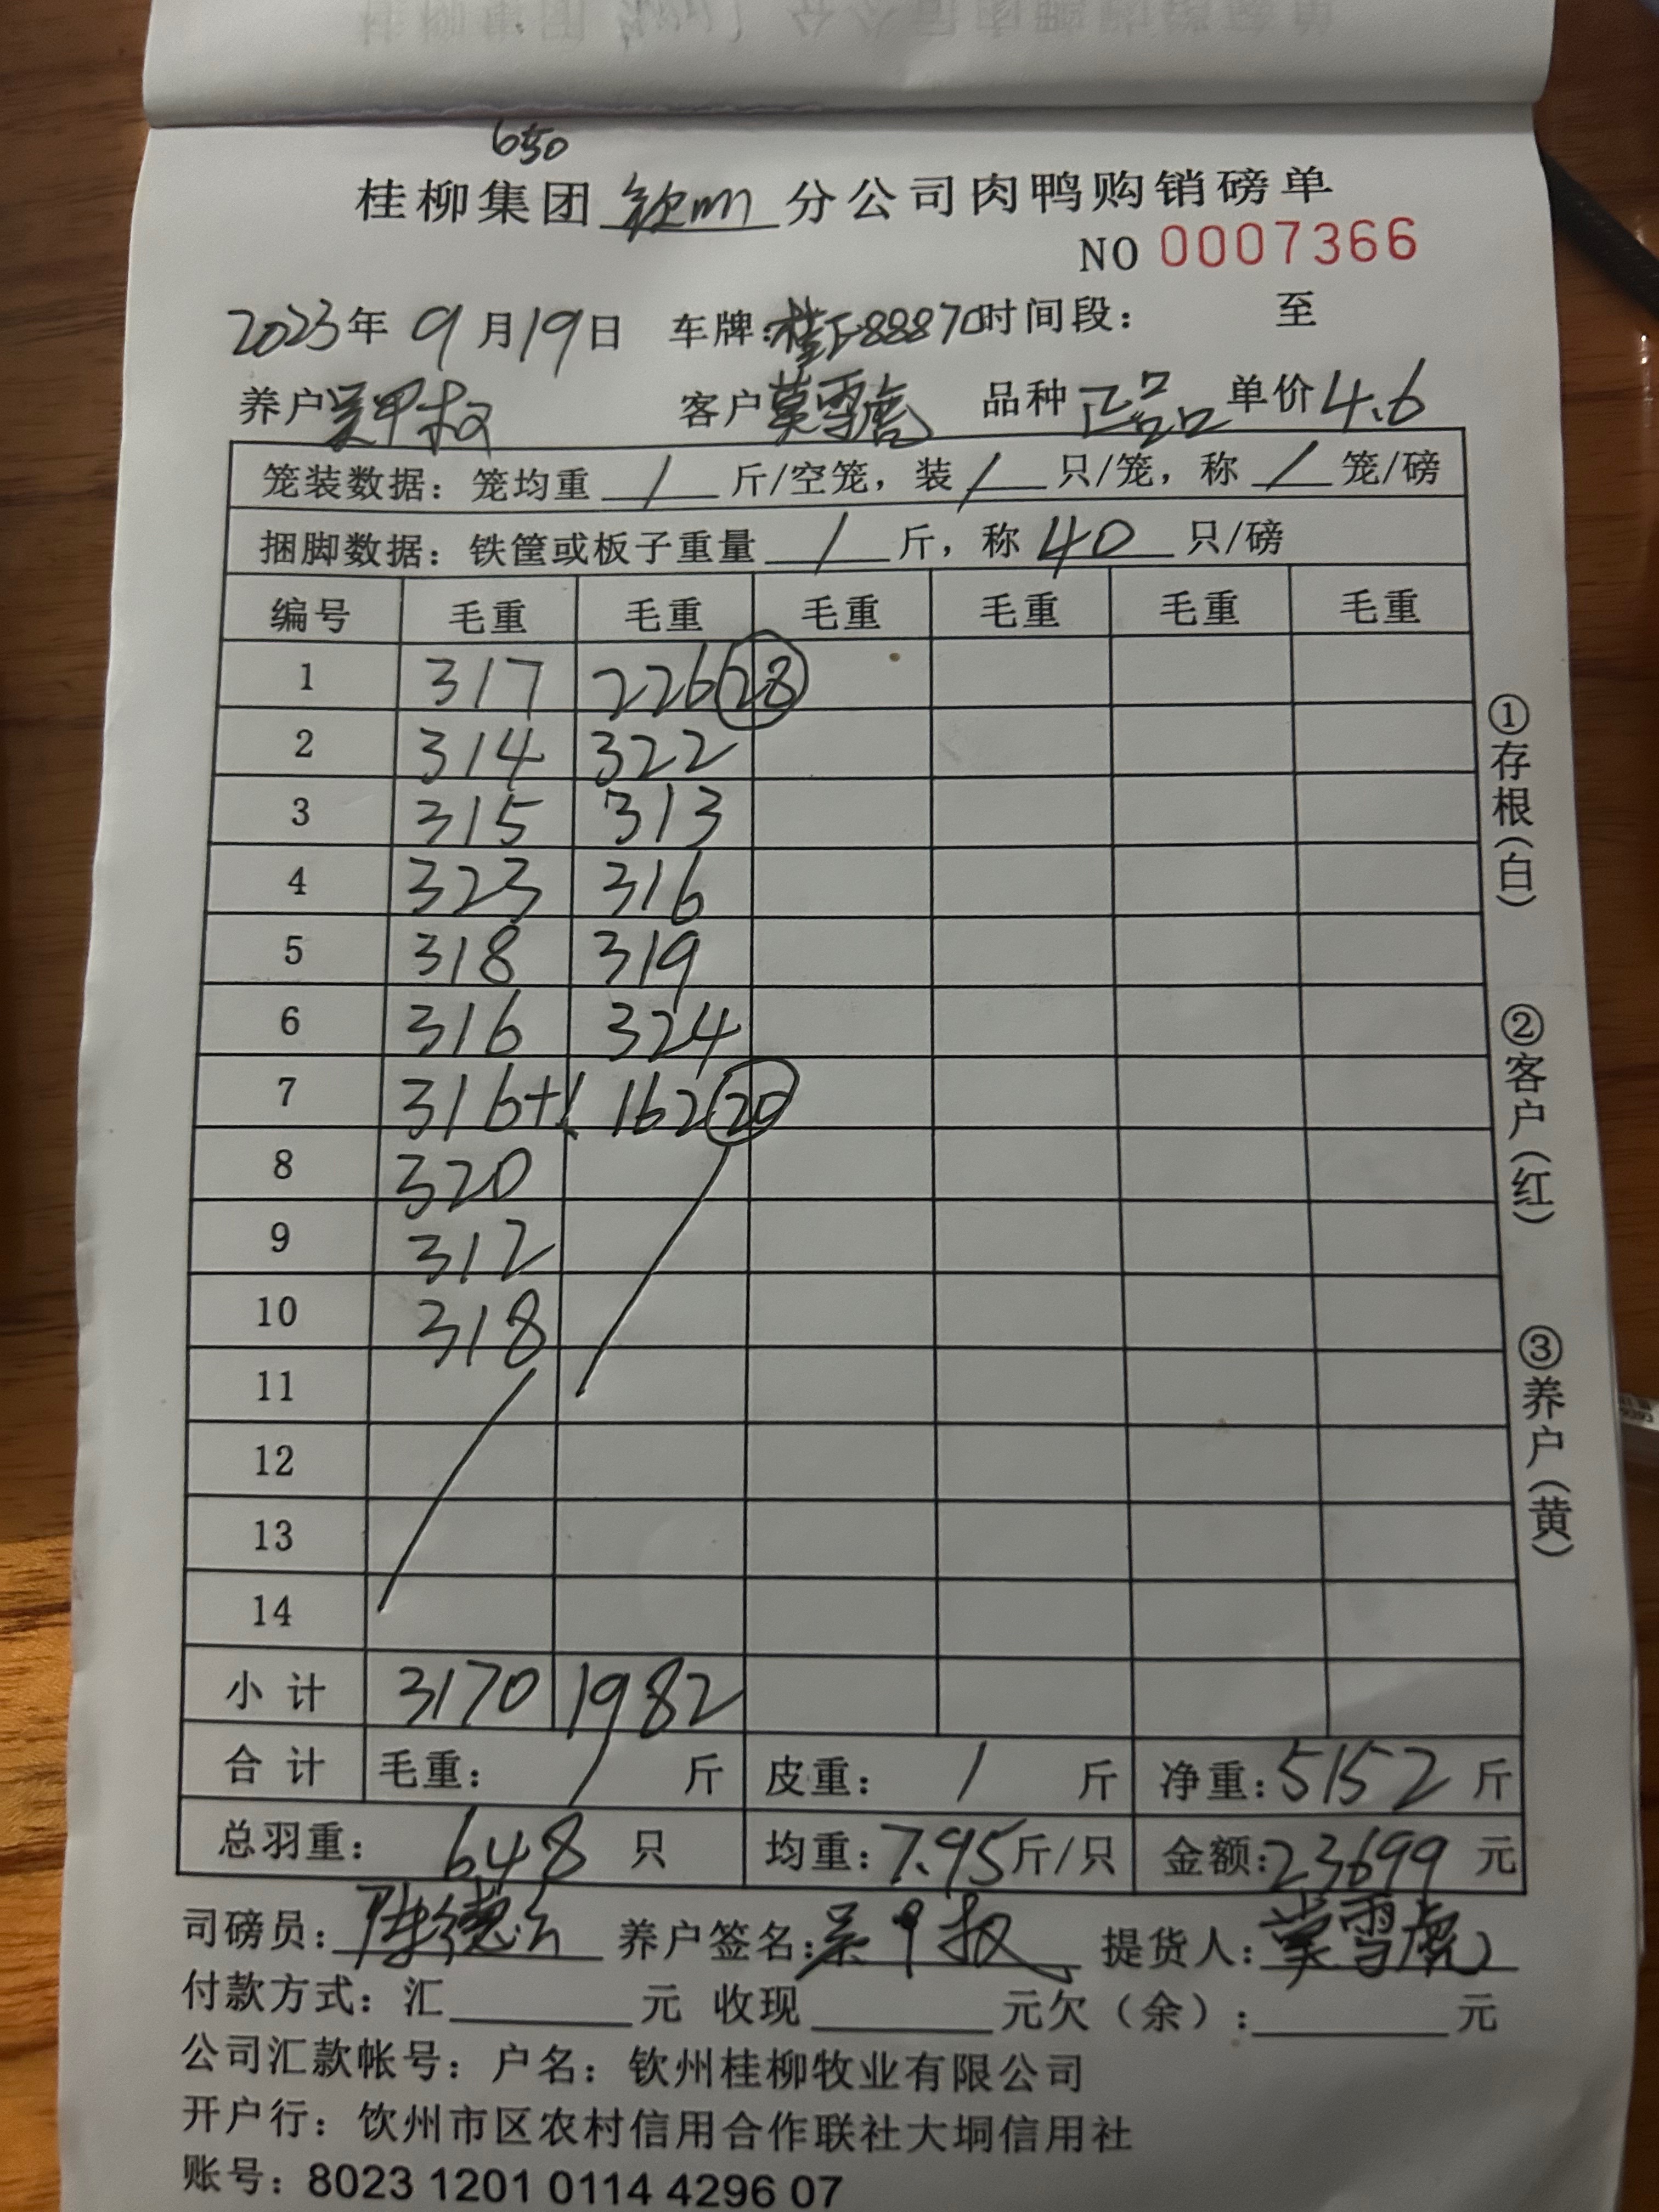 650
桂柳集团 钦州 分公司肉鸭购销磅单
NO 0007366
2023年 9月19日 车牌:桂E88870时间段: 至
养户 吴甲权 客户 莫雪虎 品种 正品 单价 4.6
笼装数据:笼均重 / 斤/空笼,装 / 只/笼,称 / 笼/磅
捆脚数据:铁筐或板子重量 / 斤,称 40 只/磅
编号 毛重 毛重 毛重 毛重 毛重 毛重
1 317 226 28
2 314 322
3 315 313
4 323 316
5 318 319
6 316 324
7 316+1 162 20
8 320
9 312
10 318
11
12
13
14
小计 3170 1982
合计 毛重: / 斤 皮重: / 斤 净重:5152 斤
总羽重: 648 只 均重:7.95斤/只 金额:23699 元
司磅员:陈德 养户签名:吴甲权 提货人:莫雪虎
付款方式:汇 元 收现 元欠(余): 元
公司汇款帐号:户名:钦州桂柳牧业有限公司
开户行:饮州市区农村信用合作联社大垌信用社
账号:8023 1201 0114 4296 07
①存根(白)
②客户(红)
③养户(黄)